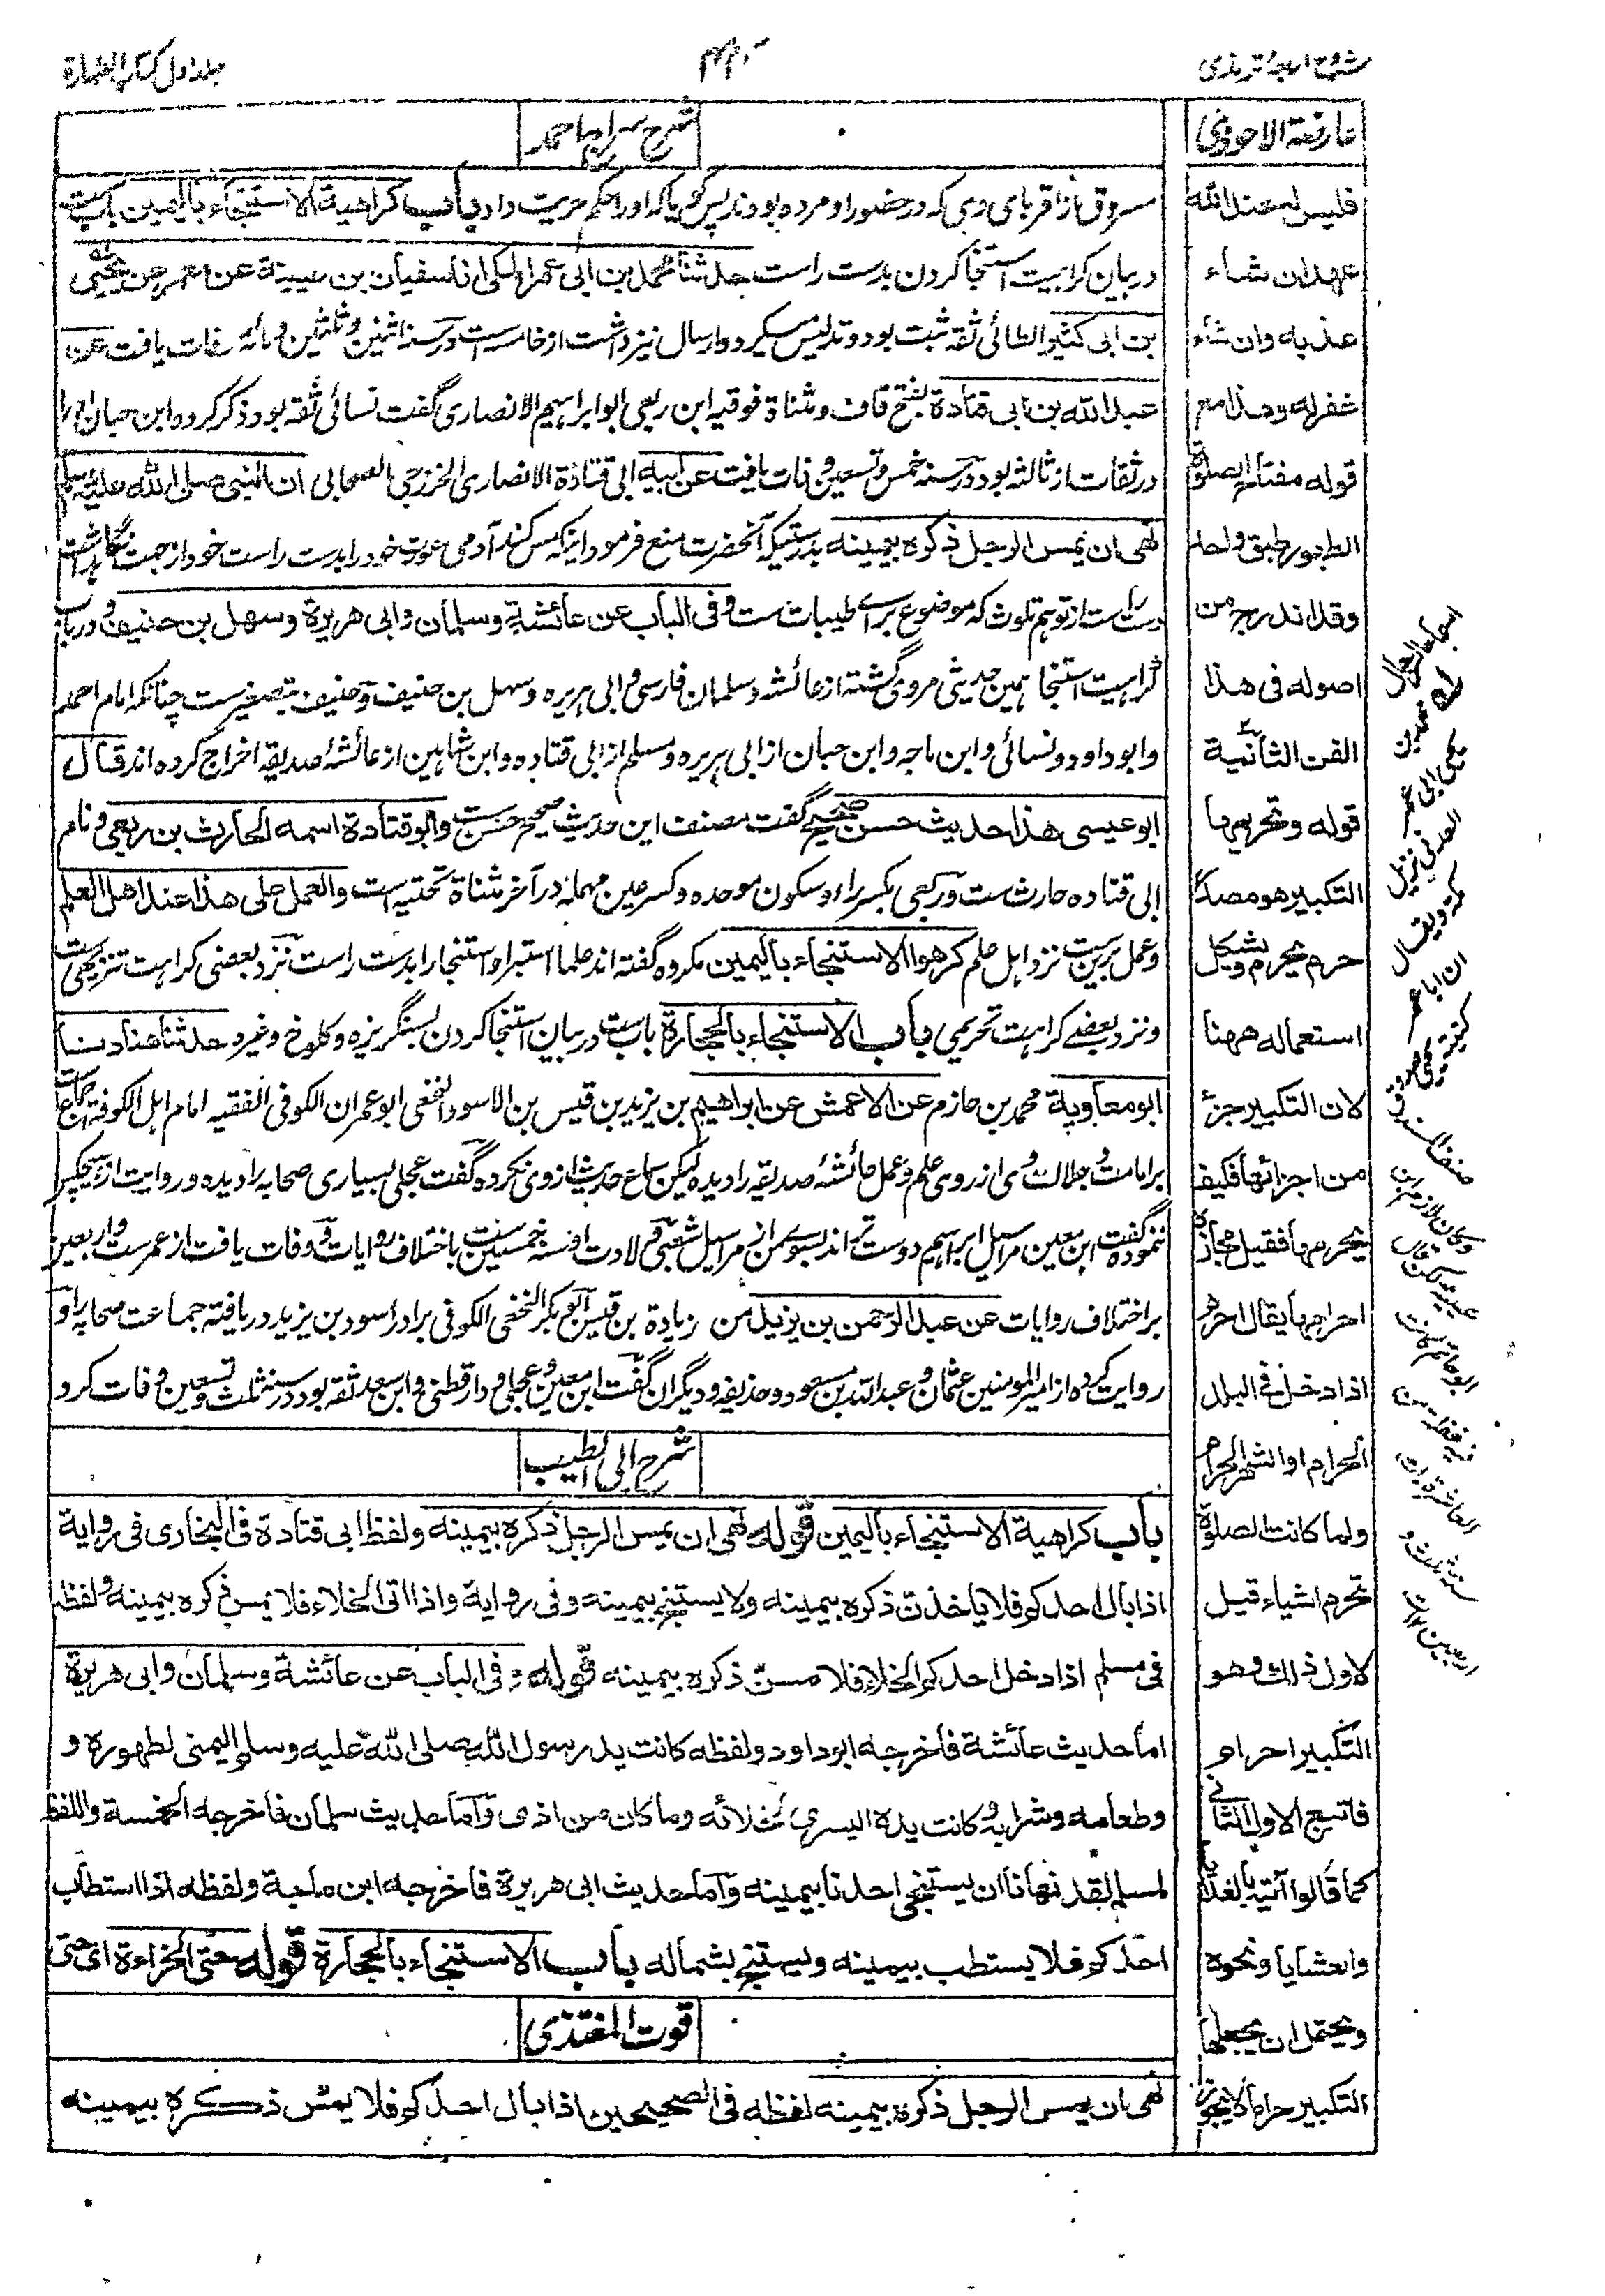 شروح اربعهٔ ترمذی
جلد اول کتاب الطهارة
شرح سراج احمد
مسروق از اقربای وی که در حضور او مرده بودند پس گویا که او را حکم حریت داد باب كراهية الاستنجاء باليمين باب ست
در بیان کراهیت استنجا کردن بدست راست حدثنا محمد بن ابی عمر المکی انا سفیان بن عیینة عن معمر عن یحیی
بن ابی کثیر الطائی ثقه ثبت بود و تدلیس میکرد و ارسال نیز داشت از خامسه ست در سنه اثنین و ثلثین و مائه وفات یافت عن
عبد الله بن ابی قتادة بفتح قاف و مثناة فوقیه ابن ربعی ابو ابراهیم الانصاری گفت نسائی ثقه بود ذکر کرده ابن حبان او را
در ثقات از ثالثه بود در سنه خمس و تسعین وفات یافت عن ابیه ابی قتادة الانصاری الخزرجی الصحابی ان النبی صلی الله علیه وسلم
نهى ان يمس الرجل ذكره بيمينه بدرستیکه آنحضرت منع فرمود اینکه مس کند آدمی عورت خود را بدست راست خود از جهت نگاهداشت
دست راست از توهم تلوث که موضوع برای طیبات ست وفی الباب عن عائشة وسلمان وابی هریرة وسهل بن حنیف و در باب
کراهیت استنجا بیمین حدیثی مروی گشته از عائشه و سلمان فارسی و ابی هریره و سهل بن حنیف و حنیف بتصغیر ست چنانکه امام احمد
و ابو داود و نسائی و ابن ماجه و ابن حبان از ابی هریره و مسلم از ابی قتاده و ابن شاهین از عائشه صدیقه اخراج کرده اند قال
ابو عیسی هذا حدیث حسن صحیح گفت مصنف این حدیث صحیح حسن ست وابو قتادة اسمه الحارث بن ربعی و نام
ابی قتاده حارث ست و ربعی بکسر راء و سکون موحده و کسر عین مهمله در آخر مثناة تحتیه است والعمل علی هذا عند اهل العلم
و عمل برین ست نزد اهل علم کرهوا الاستنجاء بالیمین مکروه گفته اند علما استبراء و استنجا را بدست راست نزد بعضی کراهت تنزیهی ست
و نزد بعضے کراهت تحریمی باب الاستنجاء بالحجارة باب ست در بیان استنجا کردن بسنگریزه و کلوخ و غیره حدثنا هناد نا
ابو معاویة محمد بن حازم عن الاعمش عن ابراهیم بن یزید بن قیس بن الاسود النخعی ابو عمران الکوفی الفقیه امام اهل الکوفه اجماع ست
بر امامت و جلالت وی از روی علم و عمل عائشه صدیقه را دیده لیکن سماع حدیث از وی نکرده گفت عجلی بسیاری صحابه را دیده و روایت از هیچیکے را
ننموده گفت ابن معین مراسیل ابراهیم دوست تر اند بسوی من از مراسیل شعبی ولادت او سنه خمسین ست باختلاف روایات و وفات یافت از عمر ست و اربعین
بر اختلاف روایات عن عبد الرحمن بن یزید من زیادة بن قیس ابو بکر النخعی الکوفی برادر اسود بن یزید دریافته جماعت صحابه را و
روایت کرده از امیر المومنین عثمان و عبد الله بن مسعود و حذیفه و دیگران گفت ابن معین و عجلی و دارقطنی و ابن سعد ثقه بود در سنه ثلث و تسعین وفات کرد
شرح ابی الطیب
باب كراهية الاستنجاء باليمين قوله نهى ان يمس الرجل ذكره بيمينه ولفظ ابی قتادة فی البخاری فی رواية
اذا بال احدكم فلا یأخذن ذكره بيمينه ولا يستنج بيمينه وفی رواية واذا اتی الخلاء فلا يمس ذكره بيمينه ولفظ
فی مسلم اذا دخل احدكم الخلاء فلا يمسّ ذكره بيمينه قوله وفی الباب عن عائشة وسلمان وابی هريرة
اما حديث عائشة فأخرجه ابو داود ولفظه كانت يد رسول الله صلی الله عليه وسلم اليمنی لطهوره و
وطعامه وشرابه وكانت يده اليسری لخلائه وما كان من اذی واما حديث سلمان فاخرجه الخمسة واللفظ
لمسلم لقد نهانا ان يستنجی احدنا بيمينه واما حديث ابی هريرة فأخرجه ابن ماجة ولفظه اذا استطاب
احدكم فلا يستطب بيمينه وليستنج بشماله باب الاستنجاء بالحجارة قوله حتی الخراءة ای حتی
قوت المغتذی
نهی ان يمس الرجل ذكره بيمينه لفظه فی الصحيحين اذا بال احدكم فلا يمس ذكره بيمينه
عارضة الاحوذی
فليس له عند الله
عهد ان شاء
عذبه وان شاء
غفر له وهذا مع
قوله مفتاح الصلوة
الطهور طبق واحد
وقد اندرج من
اصوله فی هذا
الفن الثانية
قوله وتحريمها
التكبير هو مصدر
حرم يحرم ويشكل
استعماله ههنا
لان التكبير جزء
من اجزائها فكيف
يحرمها فقيل مجازه
احرامها يقال احرم
اذا دخل فی البلد
الحرام او الشهر الحرام
ولما كانت الصلوة
تحرم اشياء قيل
لاول ذلك وهو
التكبير احرام
فاتبع الاول الثانی
كما قالوا آتيه بالغدايا
والعشايا ونحوه
ويحتمل ان يجعلها
التكبير حراما لايجوز
اسماء الرجال
محمد بن
يحيی ابی عمر
العدنی نزيل
مكة ويقال
ان ابا عمر
كنية يحيی صدوق
صنف المسند